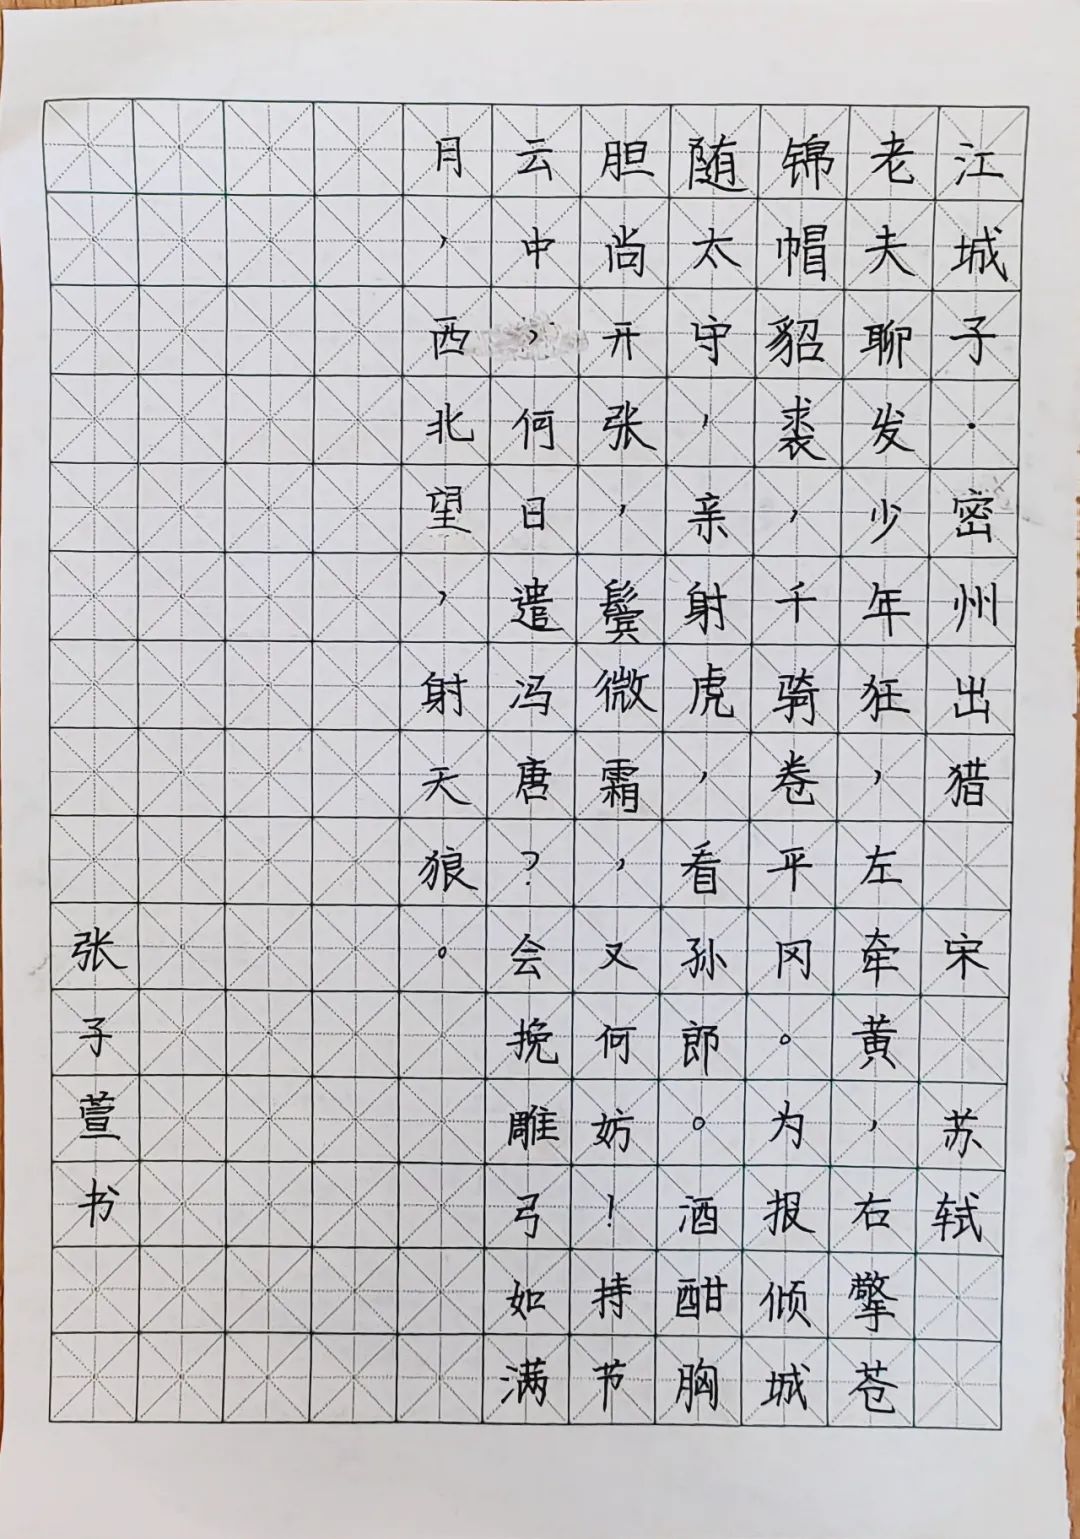 江城子·密州出猎 宋 苏轼
老夫聊发少年狂，左牵黄，右擎苍
锦帽貂裘，千骑卷平冈。为报倾城
随太守，亲射虎，看孙郎。酒酣胸
胆尚开张，鬓微霜，又何妨！持节
云中，何日遣冯唐？会挽雕弓如满
月，西北望，射天狼。
张子萱书